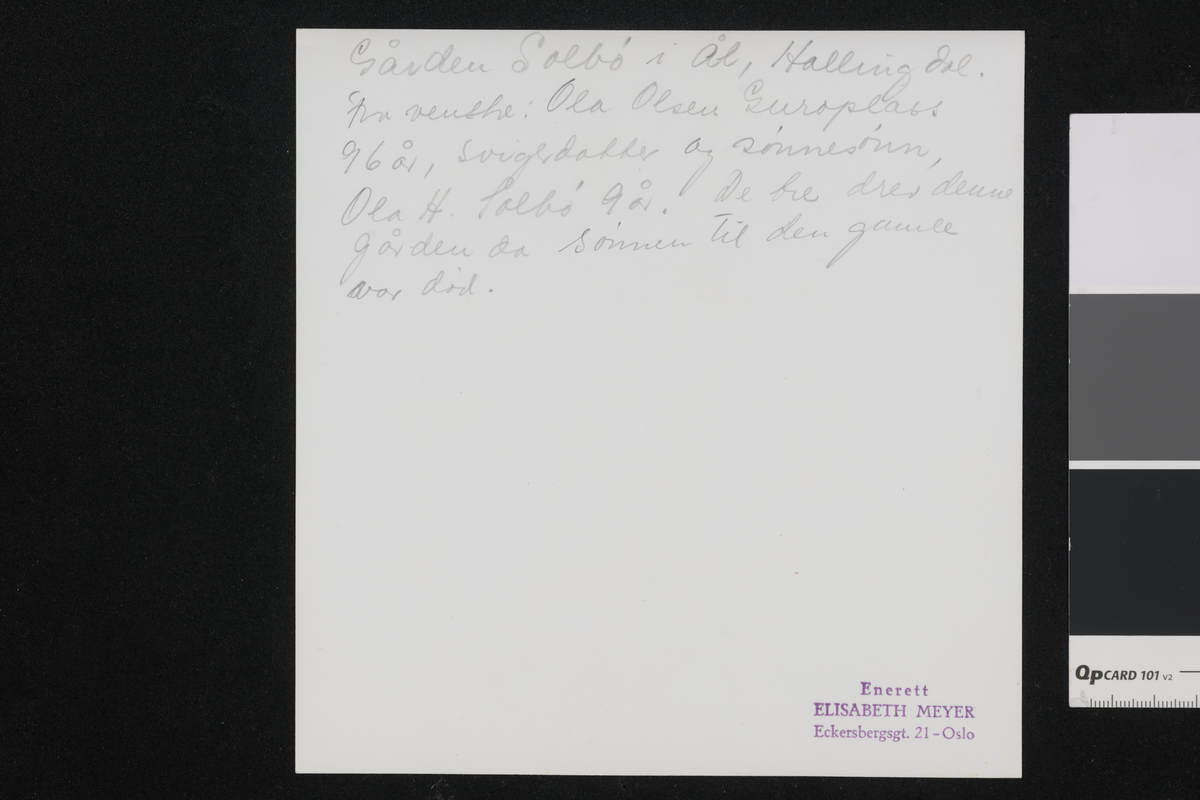 Gården Solbö i Ål, Hallingdal.
Fra venstre: Ola Olsen Guroplass
96 år, svigerdatter og sönnesönn,
Ola H. Solbö 9 år. De tre drev denne
gården da sönnen til den gamle
var död.
Enerett
ELISABETH MEYER
Eckersbergsgt. 21 - Oslo
QP CARD 101 v2